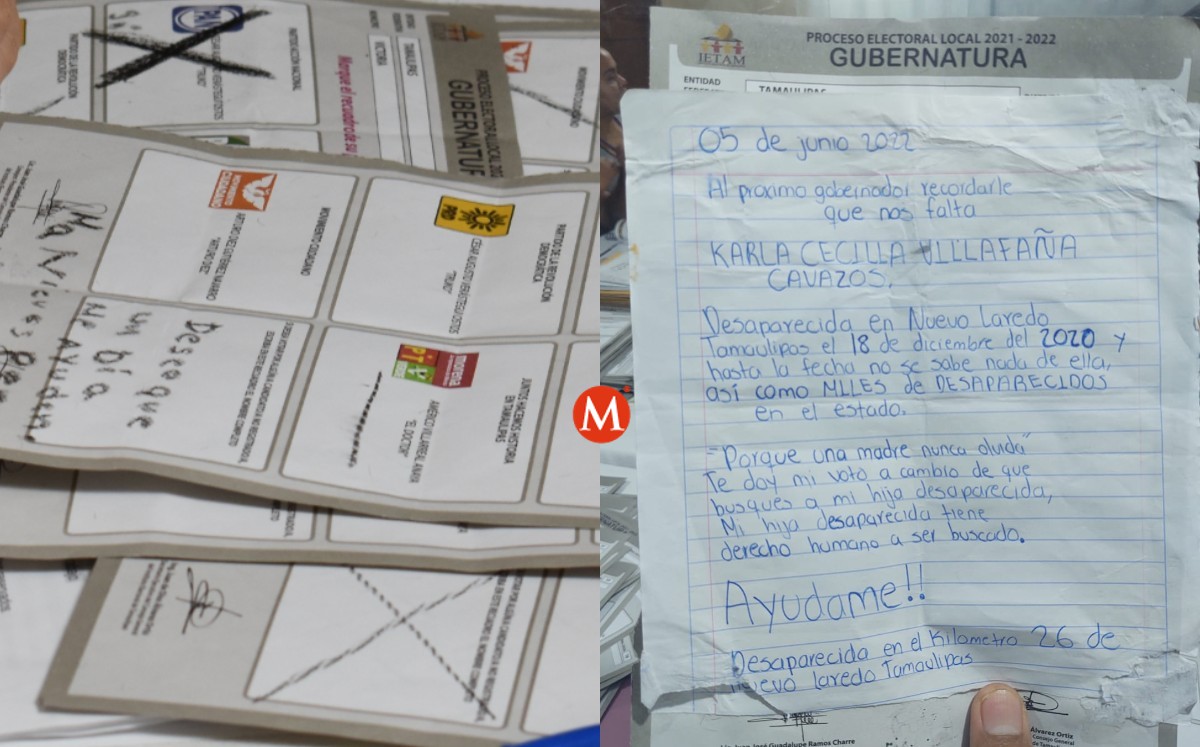 PAN
PARTIDO DE LA REVOLUCIÓN
DEMOCRÁTICA
PARTIDO ACCIÓN NACIONAL
"TRUKO"
TAMAULIPAS
VICTORIA
Marque el recuadro de su
PROCESO ELECTORAL LOCAL 202
GUBERNATUR
MOVIMIENTO CIUDADANO
MOVIMIENTO
CIUDADANO
ARTURO DIEZ GUTIÉRREZ NAVARRO
"ARTURO DIEZ"
MOVIMIENTO CIUDADANO
PRD
CÉSAR AUGUSTO VERÁSTEGUI OSTOS
"TRUKO"
PARTIDO DE LA REVOLUCIÓN
DEMOCRÁTICA
Deseo que
un día
morena
PT
VERDE
AMÉRICO VILLARREAL ANAYA
"EL DOCTOR"
JUNTOS HACEMOS HISTORIA
EN TAMAULIPAS
M
IETAM
PROCESO ELECTORAL LOCAL 2021 - 2022
GUBERNATURA
ENTIDAD
TAMAULIPAS
05 de junio 2022
Al proximo gobernador recordarle
que nos falta
KARLA CECILIA VILLAFAÑA
CAVAZOS.
Desaparecida en Nuevo Laredo
Tamaulipas el 18 de diciembre del 2020 y
hasta la fecha no se sabe nada de ella,
así como MILES de DESAPARECIDOS
en el estado.
-"Porque una madre nunca olvida"
Te doy mi voto a cambio de que
busques a mi hija desaparecida,
Mi hija desaparecida tiene
derecho humano a ser buscado.
Ayudame!!
Desaparecida en el Kilometro 26 de
Nuevo Laredo Tamaulipas
Juan José Guadalupe Ramos Charre
Álvarez Ortiz